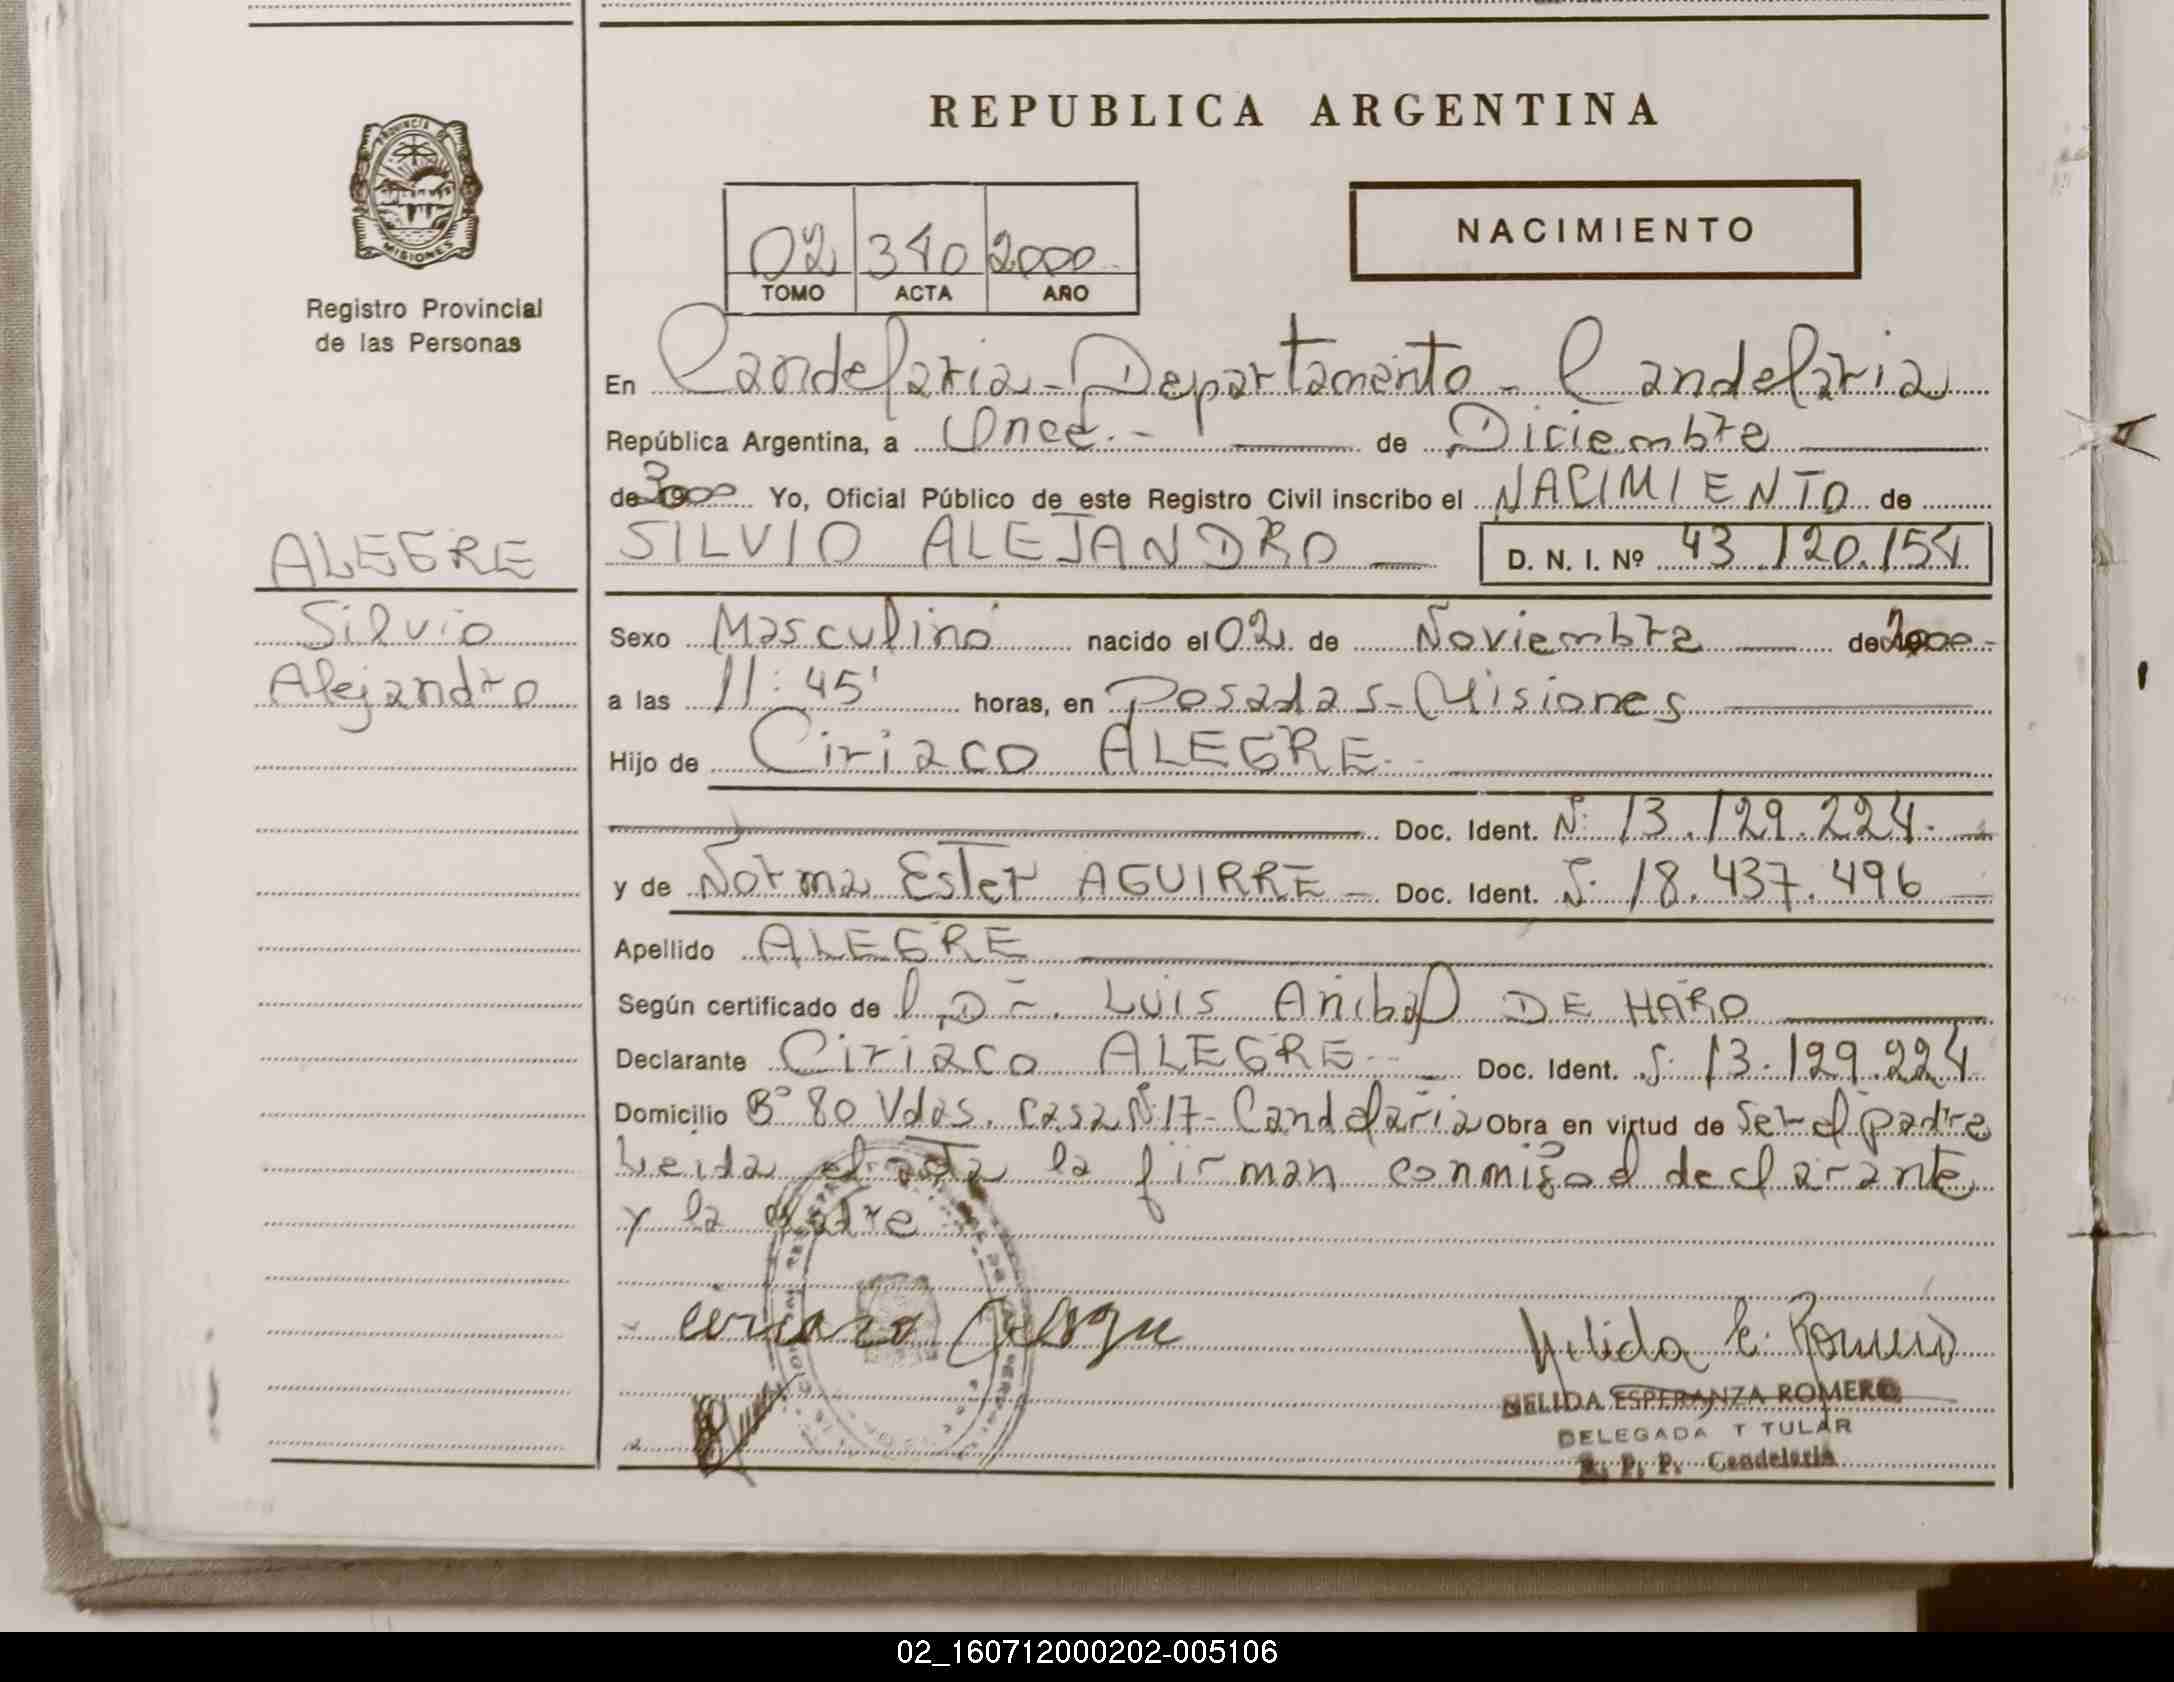 REPUBLICA ARGENTINA
PROVINCIA DE
MISIONES
Registro Provincial
de las Personas
NACIMIENTO
02 340 2000
TOMO ACTA AÑO
En Candelaria - Departamento - Candelaria
República Argentina, a Once.- de Diciembre
de 2000 Yo, Oficial Público de este Registro Civil inscribo el NACIMIENTO de
ALEGRE
SILVIO ALEJANDRO D. N. I. Nº 43.120.154
Silvio
Alejandro
Sexo Masculino nacido el 02 de Noviembre de 2000-
a las 11:45' horas, en Posadas - Misiones
Hijo de Ciriaco ALEGRE.-
Doc. Ident. Nº 13.129.224.-
y de Norma Ester AGUIRRE - Doc. Ident. Nº 18.437.496
Apellido ALEGRE
Según certificado de Dr. LUIS Anibal DE HARO
Declarante Ciriaco ALEGRE.- Doc. Ident. Nº 13.129.224
Domicilio Bº 80 Vdas. casa Nº 17- Candelaria Obra en virtud de ser el padre
Leida el acta la firman conmigo el declarante
y la madre
Nelida E. Romero
NELIDA ESPERANZA ROMERO
DELEGADA T TULAR
R. P. P. Candelaria
02_160712000202-005106